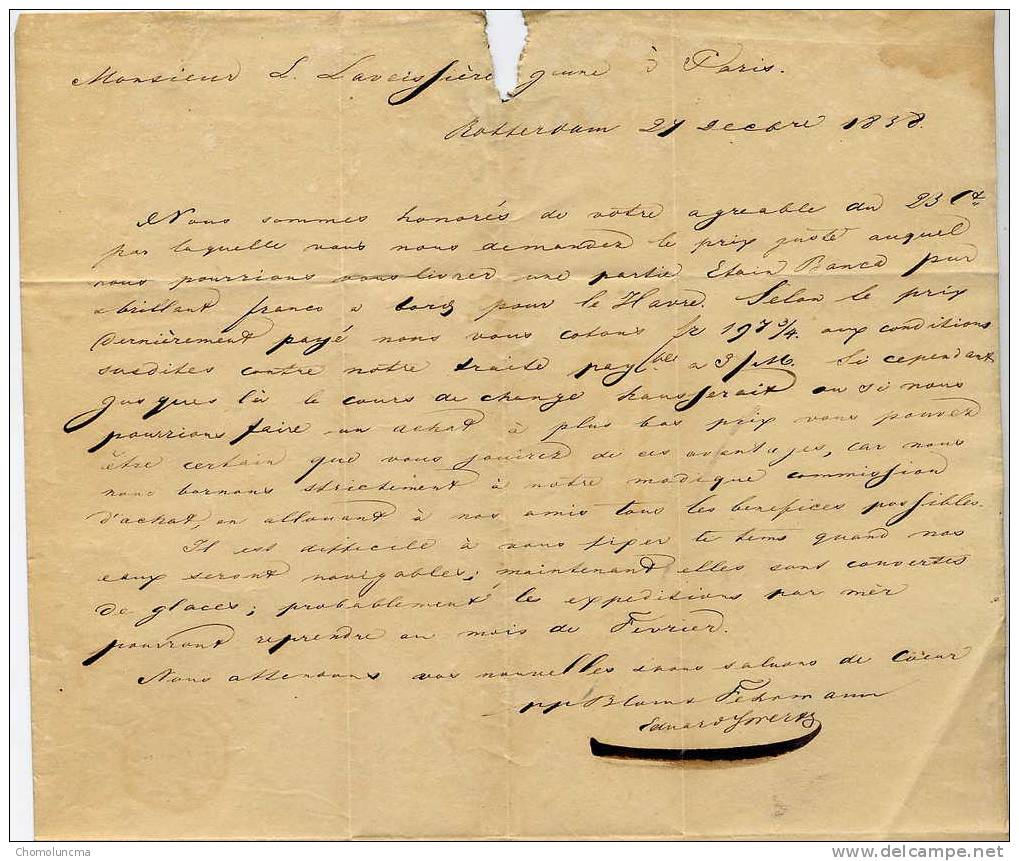 Monsieur L. Laveissière jeune à Paris.
Rotterdam 27 Decbre 1838.
Nous sommes honorés de votre agreable du 23 Ct.
par laquelle vous nous demandez le prix juste auquel
nous pourrions vous livrer une partie Etain Banca pur
& brillant franco a bord pour le Havre. Selon le prix
dernièrement payé nous vous cotons fr 197 3/4. aux conditions
susdites contre notre traité payble a 3/M. Si cependant
jusques là le cours de change hausserait ou si nous
pourrions faire un achat à plus bas prix vous pouvez
être certain que vous jouirez de ces avantajes, car nous
nous bornons strictement à notre modique commission
d'achat, en allouant à nos amis tous les benefices possibles.
Il est difficile à vous fixer le tems quand nos
eaux seront navigables; maintenant elles sont couvertes
de glaces; probablement les expeditions par mèr
pourront reprendre au mois de Fevrier.
Nous attendons vos nouvelles & vous saluons de cœur
pp Blom & Fehrmann
Eduard
Chomoluncma
delcampe.net